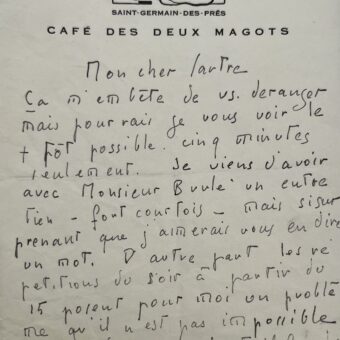 SAINT-GERMAIN-DES-PRÉS
CAFÉ DES DEUX MAGOTS
Mon cher Sartre
Ça m'embête de vs. deranger
mais pourrais je vous voir le
+ tôt possible. cinq minutes
seulement. Je viens d'avoir
avec Monsieur Brulé un entre
tien - fort courtois - mais si sur
prenant que j'aimerais vous en dire
un mot. D'autre part les ré
petitions du soir à partir du
15 posent pour moi un problè
me qu'il n'est pas impossible